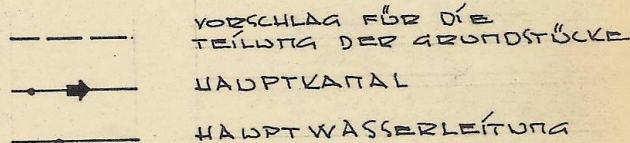 VORSCHLAG FÜR DÍE
TEÍLUNG DER GRUNDSTÜCKE
HAUPTKANAL
HAUPTWASSERLEÍTUNG